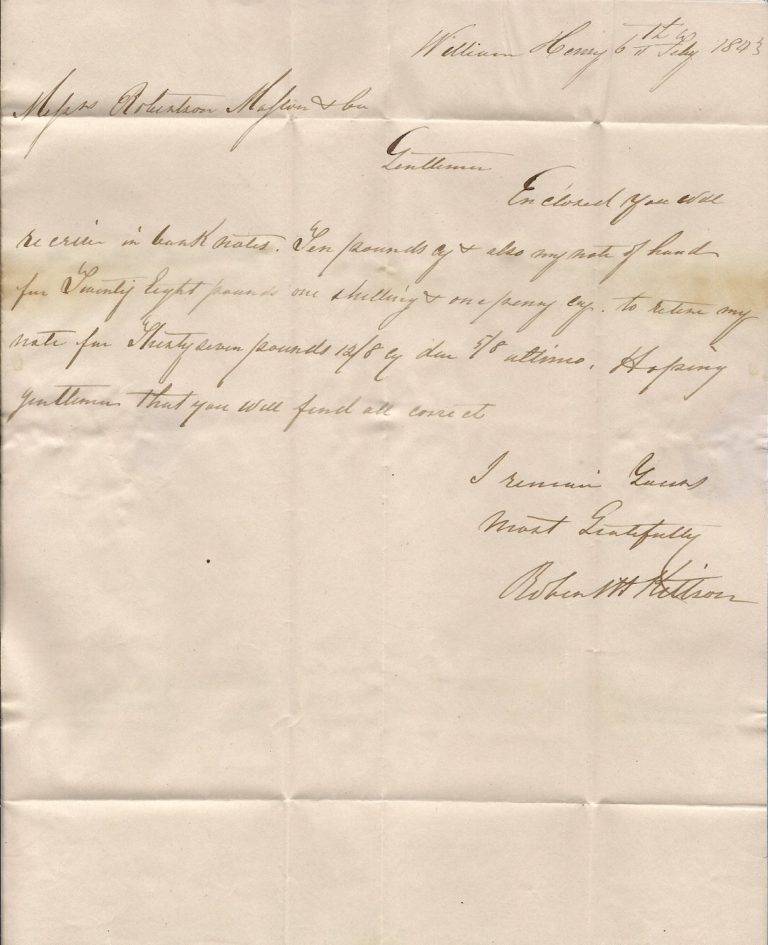 William Henry 6th July 1843
Messrs Robertson Masson & Co
Gentlemen
Enclosed you will
receive in bank notes. Ten pounds cy & also my note of hand
for Twenty Eight pounds one shilling & one penny cy. to retire my
note for Thirty seven pounds 12/8 cy due 5/8 ultimo. Hoping
gentlemen that you will find all correct
I remain Yours
most Gratefully
Robert H Kittson